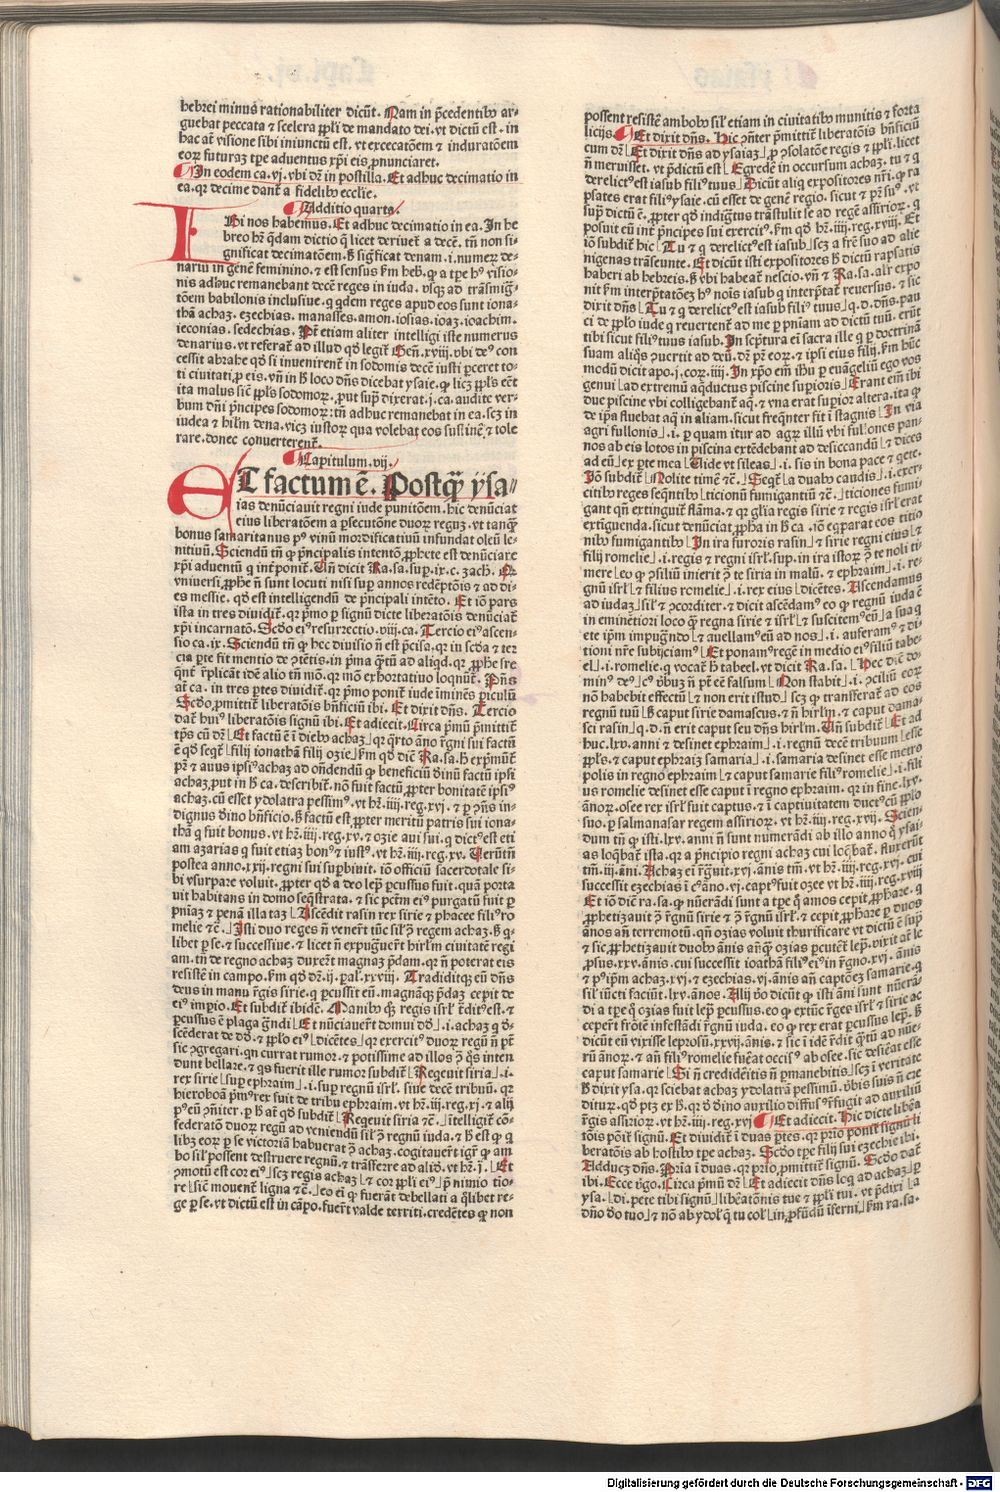 hebrei minus rationabiliter dicūt. Nam in p̄cedentibꝰ ar-
guebat peccata ⁊ scelera ꝓpli de mandato dei. vt dictū est. in
hac aūt visione sibi iniunctū est. vt excecatōem ⁊ induratōem
eorꝝ futuraꝝ tꝑe aduentus xp̄i eis ꝓnunciaret.
In eodem ca. vj. vbi dr̄ in postilla. Et adhuc decimatio in
ea. qꝛ decime dant᷑ a fidelibꝰ ecclie.
Additio quarta.
Ibi nos habemus. Et adhuc decimatio in ea. In he
breo hr̄ q̄dam dictio q̄ licet deriuet᷑ a decē. tn̄ non si-
gnificat decimatōem. ſꝫ sig̓ficat denam. i. numerꝝ de-
nariū in gen̄e feminino. ⁊ est sensus ẜm heb̓. ꝙ a tꝑe hꝰ visio-
nis adhuc remanebant decē reges in iuda. vsqꝫ ad trāsmig̓-
tōem babilonis inclusiue. q̓ qdem reges apud eos sunt iona-
thā achaz. ezechias. manasses. amon. iosias. ioaz. ioachim.
ieconias. sedechias. Pt̄ etiam aliter intelligi iste numerus
denarius. vt referat᷑ ad illud qd̓ legit᷑ Gen̄. xviij. vbi deꝰ con
cessit abrahe qd̓ si inuenirent᷑ in sodomis decē iusti ꝑceret to-
ti ciuitati, ꝓ eis. vn̄ in ſꝫ loco dn̄s dicebat ysaie. ꝙ licꝫ ꝓpl̄s eēt
ita malus sic̄ ꝓpl̄s sodomoꝝ. ꝓut sup̄ dixerat. j. ca. audite ver-
bum dn̄i p̄ncipes sodomoꝝ: tn̄ adhuc remanebat in ea. scꝫ in
iudea ⁊ hirl̄m dena. vicꝫ iustoꝝ qua volebat eos sustinē ⁊ tole
rare. donec conuerterent᷑.
Capitulum. vij.
ET factum ē. Postq̄ȝ ysa-
ias denūciauit regni iude punitōem. hic denūciat
eius liberatōem a ꝑsecutōne duoꝝ regnꝫ. vt tanqȝ
bonus samaritanus pꝰ vinū mordificatiuū infundat oleū le-
nitiuū. Sciendū tn̄ ꝙ p̄ncipalis intentō ꝓphete est denūciare
xp̄i aduentū q̓ int̓ponit᷑. Vn̄ dicit Ra. sa. sup̄. ix. c. zach. Qꝛ
vniuersi, ꝓphe n̄ sunt locuti nisi sup annos redēptōis ⁊ ad di-
es messie. qd̓ est intelligendū de p̄ncipali intēto. Et iō pars
ista in tres diuidit᷑. qꝛ p̄mo ꝑ signū dicte liberatōis denūciat᷑
xp̄i incarnatō. Scd̓o eiꝰ resurrectio. viij. ca. Tercio eiꝰ ascen-
sio ca. ix. Sciendū tn̄ ꝙ hec diuisio n̄ est p̄cisa. qꝛ in scd̓a ⁊ ter
cia ꝑte fit mentio de ꝯtētis. in p̄ma q̄tū ad aliqd. qꝛ ꝓphe fre
quēt᷑ replicāt idē alio tn̄ mō. qꝛ mō exhortatiuo loqnūt᷑. Pn̄s
aūt ca. in tres ꝑtes diuidit᷑. qꝛ p̄mo ponit᷑ iude īminēs ꝑiculū
Scd̓o, ꝓmittit᷑ liberatōis bn̄ficiū ibi. Et dixit dn̄s. Tercio
dat᷑ huiꝰ liberatōis signū ibi. Et adiecit. Circa p̄mū p̄mittit᷑
tp̄s cū dr̄ Et factū ē ī diebꝰ achaz qꝛ q̓rto āno r̄gni sui factū
ē qd̓ seqt᷑ filij ionathā filij ozie ẜm qd̓ diē Ra. sa. h̓ exp̓mut᷑
pr̄ ⁊ auus ipsiꝰ achaz ad on̄dendū ꝙ beneficiū diuinū factū ipsi
achaz, put in ſꝫ ca. describit᷑. nō fuit factū, ꝓpter bonitatē ipsiꝰ
achaz. cū esset ydolatra pessimꝰ. vt hr̄. iiij. reg. xvj. ⁊ ꝑ ꝯn̄s in-
dignus d̓ino bn̄ficio. ſꝫ factū est, ꝓpter meritū patris sui iona-
thā q̓ fuit bonus. vt hr̄. iiij. reg. xv. ⁊ ozie aui sui. q̓ dictꝰ est eti
am azarias q̓ fuit etiaȝ bonꝰ ⁊ iustꝰ. vt hr̄. iiij. reg. xv. Verūtn̄
postea anno. xxij. regni sui suꝑbiuit. iō officiū sacerdotale si-
bi vsurpare voluit. ꝓpter qd̓ a deo lep̄ ꝑcussus fuit. quā porta
uit habitans in domo seq̄strata. ⁊ sic pctm̄ eiꝰ purgatū fuit ꝑ
pn̄iaȝ ⁊ penā illataȝ Ascēdit rasin rex sirie ⁊ phacee filiꝰ ro
melie ⁊c̄. Isti duo reges n̄ venert᷑ tūc sil̓ ꝯ regem achaz. ſꝫ q̓-
libet ꝑ se. ⁊ successiue. ⁊ licet n̄ expugn̄uert̄ hirl̄m ciuitatē regi
am. tn̄ de regno achaz duxert̄ magnaȝ p̄dam. qꝛ n̄ poterat eis
resistē in campo. ẜm qd̓ dr̄. ij. ꝑal. xxviij. Tradiditqꝫ eū dn̄s
deus in manu r̄gis sirie. q̓ ꝑcussit eū. magnāqꝫ p̄daȝ cepit de
eiꝰ impio. Et subdit᷑ ibidē. Manibꝰ qꝫ regis isrl̄ t̄ditꝰ est. ⁊
ꝑcussus ē plaga g̓ndi Et nūciauert̄ domui dd̓ . i. achaz q̓ d̓-
scēderat de dd̓. ⁊ ꝓplo eiꝰ dicētes qꝛ exercitꝰ duoꝝ regū n̄ pt̄
sic ꝯgregari. qn currat rumor. ⁊ potissime ad illos ꝯ q̓s inten
dunt bellare. ⁊ q̓s fuerit ille rumor subdit᷑ Reqeuit siria . i.
rex sirie sup ephraim . i. sup regnū isrl̄. siue decē tribuū. qꝛ
hieroboā p̄mꝰ rex fuit de tribu ephraim. vt hr̄. iij. reg. xj. ⁊ alij
pꝰ eū ꝯn̄iter. ꝑ ſꝫ aūt qd̓ subdit᷑ Reqeuit siria ⁊c̄. īteligit᷑ cō-
federatō duoꝝ regū ad veniendū sil̓ ꝯ regnū iuda. ⁊ ſꝫ est ꝙ q̓
libꝫ eoꝝ ꝑ se victoriā habuerat ꝯ achaz. cogitauert̄ igr̄ ꝙ am
bo sil̓ possent destruere regnū. ⁊ trāsferre ad aliū. vt hr̄. j. Et
ꝯmotū est cor eiꝰ scꝫ regis achaz ⁊ cor ꝓpli eiꝰ p̄ nimio tīo-
re sic̄ mouent᷑ ligna ⁊c̄. eo eī ꝙ fuerāt debellati a q̓libet re-
ge ꝑ se. vt dictū est in cāpo. fuert̄ valde territi. credētes ꝙ non
possent resistē ambobꝰ sil̓ etiam in ciuitatibꝰ munitis ⁊ forta
licijs. Et dixit dn̄s. Hic ꝯn̄ter p̄mittit᷑ liberatōis bn̄ficiū
cum dr̄ Et dixit dn̄s ad ysaiaȝ ꝓ ꝯsolatōe regis ⁊ ꝓpli. licet
n̄ meruisset. vt p̄dictū est Egredē in occursum achaz. tu ⁊ q̓
derelictꝰ est iasub filiꝰ tuus Dicūt aliq̓ expositores nr̄i. ꝙ ra
psates erat filiꝰ ysaie. cū esset de genē regio. sicut ⁊ pr̄ suꝰ. vt
sup̄ dictū ē. ꝓpter qd̓ indig̓tus trāstulit se ad regē assirioꝝ. q̓
posuit eū int̓ p̄ncipes sui exercitꝰ. ẜm qd̓ hr̄. iiij. reg. xviij. Et
iō subdit᷑ hic Tu ⁊ q̓ derelictꝰ est iasub scꝫ a fr̄e suo ad alie
nigenas trāseunte. Et dicūt isti expositores ſꝫ dictū rapsatis
haberi ab hebreis. ſꝫ vbi habeat᷑ nescio. vn̄ ⁊ Ra. sa. alr̄ expo
nit ẜm interp̄tatōeȝ hꝰ nois iasub q̓ interp̄tat᷑ reuersus. ⁊ sic
dixit dn̄s Tu ⁊ q̓ derelictꝰ est iasub filiꝰ tuus q. d. dn̄s. pau
ci de ꝓplo iude q̓ reuertent᷑ ad me ꝑ pn̄iam ad dictū tuū. erūt
tibi sicut filiꝰ tuus iasub. In scp̄tura ei sacra ille q̓ ꝑ doctrinā
suam aliq̓s ꝯuertit ad deū. dr̄ pr̄ eoꝝ. ⁊ ipsi eius filij. ẜm hūc
modū dicit apo. j. cor. iiij. In xp̄o em̄ ih̄u ꝑ euāgeliū ego vos
genui ad extremū aq̄ductus piscine suꝑioris Erant em̄ ibi
due piscine vbi colligebant᷑ aq̄. ⁊ vna erat suꝑior altera. ita ꝙ
de ip̄a fluebat aq̄ in aliam. sicut freq̄nter fit ī stagnis In via
agri fullonis . i. ꝑ quam itur ad agrꝝ illū vbi fullones pan-
nos ab eis lotos in piscina extēdebant ad desiccandū ⁊ dices
ad eū ex ꝑte mea Vide vt sileas . i. sis in bona pace ⁊ q̓ete.
Iō subdit᷑ Nolite timē ⁊c̄. Seqt᷑ a duabꝰ caudis . i. exer-
citibꝰ reges seq̄ntibꝰ ticionū fumigantiū ⁊c̄. ticiones fumi-
gant qn̄ extinguit᷑ flāma. ⁊ qꝛ gl̓ia regis sirie ⁊ regis isrl̄ erat
extiguenda. sicut denūciat ꝓpha in ſꝫ ca. iō eqꝑarat eos titio
nibꝰ fumigantibꝰ In ira furoris rasin ⁊ sirie regni eiuſ ⁊
filij romelie . i. regis ⁊ regni isrl̄. sup. in ira istoꝝ ꝯ te noli ti-
mere eo ꝙ ꝯsiliū inierit ꝯ te siria in malū. ⁊ ephraim . i. re-
gnū isrl̄ ⁊ filius romelie . i. rex eius dicētes. Ascendamus
ad iudaȝ sil̓ ⁊ ꝯcorditer. ⁊ dicit ascēdamꝰ eo ꝙ regnū iuda ē
in eminētiori loco ꝙ̄ regna sirie ⁊ isrl̄ ⁊ suscitemꝰ eū a sua q̓
ete ip̄m impug̓ndo ⁊ auellamꝰ eū ad nos . i. auferamꝰ ⁊ di-
tioni nr̄e subijciamꝰ Et ponamꝰ regē in medio eiꝰ filiū tabe-
el . i. romelie. q̓ vocat᷑ ſꝫ tabeel. vt dicit Ra. sa. Hec dic̄ do-
minꝰ deꝰ cꝰ v̓buȝ n̄ pt̄ eē falsum Non stabit . i. ꝯciliū eoꝝ
nō habebit effectū ⁊ non erit istud scꝫ ꝙ transferat᷑ ad eos
regnū tuū ſꝫ caput sirie damascus. ⁊ n̄ hirl̄m. ⁊ caput dama-
sci rasin q. d. n̄ erit caput seu dn̄s hirl̄m. Vn̄ subdit᷑ Et ad
huc. lxv. anni ⁊ desinet ephraim . i. regnū decē tribuum esse
ꝓpl̄s. ⁊ caput ephraiȝ samaria . i. samaria desinet esse metro
polis in regno ephraim ⁊ caput samarie filiꝰ romelie . i. fili
us romelie desinet esse caput ī regno ephraim. qꝛ in fine. lxv.
ānoꝝ. osee rex isrl̄ fuit captus. ⁊ ī captiuitatem ductꝰ cū ꝓplo
suo. ꝑ salmanasar regem assirioꝝ. vt hr̄. iiij. reg. xvij. Scien-
dum tn̄ ꝙ isti. lxv. anni n̄ sunt numerādi ab illo anno q̓ ysai-
as loq̄bat᷑ ista. qꝛ a p̄ncipio regni achaz cui loq̄bat᷑. fluxerūt
tm̄. iij. āni. Achaz ei r̄guit. xvj. ānis tm̄. vt hr̄. iiij. reg. xvj. cui
successit ezechias ī cꝰ āno. vj. captꝰ fuit ozee vt hr̄. iiij. reg. xviij
Et iō diē ra. sa. ꝙ nūerādi sunt a tꝑe q̓ amos cepit, ꝓphare. q̓
ꝓphetizauit ꝯ r̄gnū sirie ⁊ ꝯ r̄gnū isrl̄. ⁊ cepit, ꝓphare ꝑ duos
ānos an̄ terremotū. qn̄ ozias voluit thurificare vt dictū ē sup̄
⁊ sic, ꝓphetizauit duobꝰ ānis an̄qȝ ozias ꝑcutēt᷑ lep̄. vixit aūt le
ꝓsus. xxv. ānis. cui successit ioathā filiꝰ eiꝰ in r̄gno. xvj. ānis
⁊ pꝰ ip̄m achaz. xvj. ⁊ ezechias. vj. ānis an̄ captōeȝ samarie. q̓
sil̓ iūcti faciūt. lxv. ānos. Alij v̓o dicūt ꝙ isti āni sunt nūerā-
di a tꝑe q̓ ozias fuit lep̄ ꝑcussus. eo ꝙ extūc r̄ges isrl̄ ⁊ sirie ac
cepert̄ frōtē infestādi r̄gnū iuda. eo ꝙ rex erat ꝑcussus lep̄. ſꝫ
dicūt eū vixisse leprosū. xxvij. ānis. ⁊ sic ī idē r̄dit q̄tū ad nūe-
rū ānoꝝ. ⁊ an̄ filiꝰ romelie fuēat occisꝰ ab osee. sic desiēat esse
caput samarie Si n̄ credidēitis n̄ ꝑmanebitis scꝫ ī veritate
ſꝫ dixit ysa. qꝛ sciebat achaz ydolatrā pessimū. v̓bis suis n̄ cre
diturꝝ. qd̓ ptꝫ ex ſꝫ. qꝛ d̓ d̓ino auxilio diffusꝰ r̄fugit ad auxiliū
r̄gis assirioꝝ. vt hr̄. iiij. reg. xvj Et adiecit. Hic dicte libēa
tōis poīt᷑ signū. Et diuidit᷑ ī duas ꝑtes. qꝛ p̄rio ponit᷑ signū li
beratōis ab hostibꝰ tꝑe achaz. Scd̓o tꝑe filij sui ezechie ibi.
Adducꝫ dn̄s. Pria ī duas. qꝛ p̄rio, ꝓmittit᷑ signū. Scd̓o dat᷑
ibi. Ecce v̓go. Circa p̄mū dr̄ Et adiecit dn̄s loq̓ ad achaz ꝑ
ysa. di. pete tibi signū libēatōnis tue ⁊ ꝓpli tui. vt p̄dixi a
dn̄o d̓o tuo ⁊ nō ab ydol̓ q̓ tu col̓ in, ꝓfūdū īferni ẜm ra. sa.
Digitalisierung gefördert durch die Deutsche Forschungsgemeinschaft - DFG